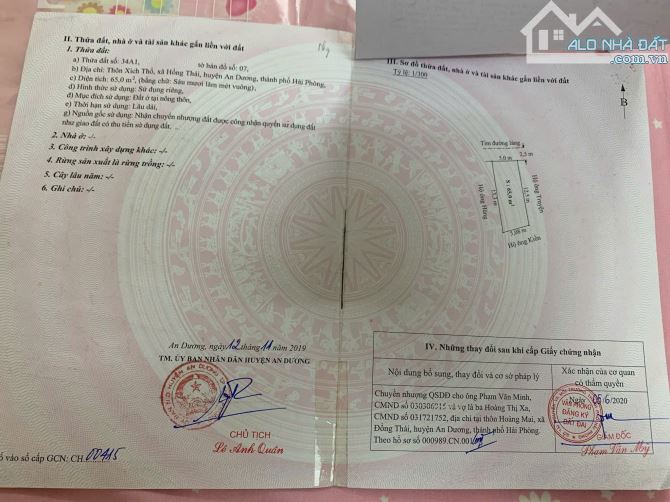 ALO NHÀ ĐẤT
II. Thửa đất, nhà ở và tài sản khác gắn liền với đất
1. Thửa đất:
a) Thửa đất số: 34A1, tờ bản đồ số: 07,
b) Địa chỉ: Thôn Xích Thổ, xã Hồng Thái, huyện An Dương, thành phố Hải Phòng,
c) Diện tích: 65,0 m², (bằng chữ: Sáu mươi lăm mét vuông),
d) Hình thức sử dụng: Sử dụng riêng,
đ) Mục đích sử dụng: Đất ở tại nông thôn,
e) Thời hạn sử dụng: Lâu dài,
g) Nguồn gốc sử dụng: Nhận chuyển nhượng đất được công nhận quyền sử dụng đất
như giao đất có thu tiền sử dụng đất.
2. Nhà ở: -/-
3. Công trình xây dựng khác: -/-
4. Rừng sản xuất là rừng trồng: -/-
5. Cây lâu năm: -/-
6. Ghi chú: -/-
An Dương, ngày 12 tháng 11 năm 2019
TM. ỦY BAN NHÂN DÂN HUYỆN AN DƯƠNG
CHỦ TỊCH
Lê Anh Quân
ố vào sổ cấp GCN: CH 00415
III. Sơ đồ thửa đất, nhà ở và tài sản khác gắn liền với đất
Tỷ lệ: 1/300
B
Tim đường làng
5.0 m
2,5 m
Hộ ông Hùng
S : 65,0 m²
Hộ ông Truyện
5.08 m
Hộ ông Kiền
IV. Những thay đổi sau khi cấp Giấy chứng nhận
Nội dung bổ sung, thay đổi và cơ sở pháp lý
Xác nhận của cơ quan
có thẩm quyền
Chuyển nhượng QSDĐ cho ông Phạm Văn Minh,
CMND số và vợ là bà Hoàng Thị Xa,
CMND số 031721752, địa chỉ tại thôn Hoàng Mai, xã
Đồng Thái, huyện An Dương, thành phố Hải Phòng.
Theo hồ sơ số 000989.CN.001
Ngày 05/6/2020
VĂN PHÒNG
ĐĂNG KÝ
ĐẤT ĐAI
GIÁM ĐỐC
Phạm Văn Mỹ